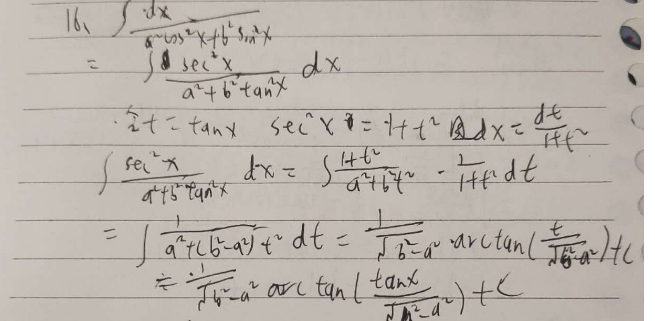 16. ∫ dx / (a²cos²x+b²sin²x)
= ∫ sec²x / (a²+b²tan²x) dx
令t=tanx sec²x=1+t² dx=dt/(1+t²)
∫ sec²x / (a²+b²tan²x) dx = ∫ (1+t²)/(a²+b²t²) · 1/(1+t²) dt
= ∫ 1/(a²+(b²-a²)t²) dt = 1/√(b²-a²) · arctan(t/√(b²-a²))+C
= 1/√(b²-a²) arctan(tanx/√(b²-a²))+C